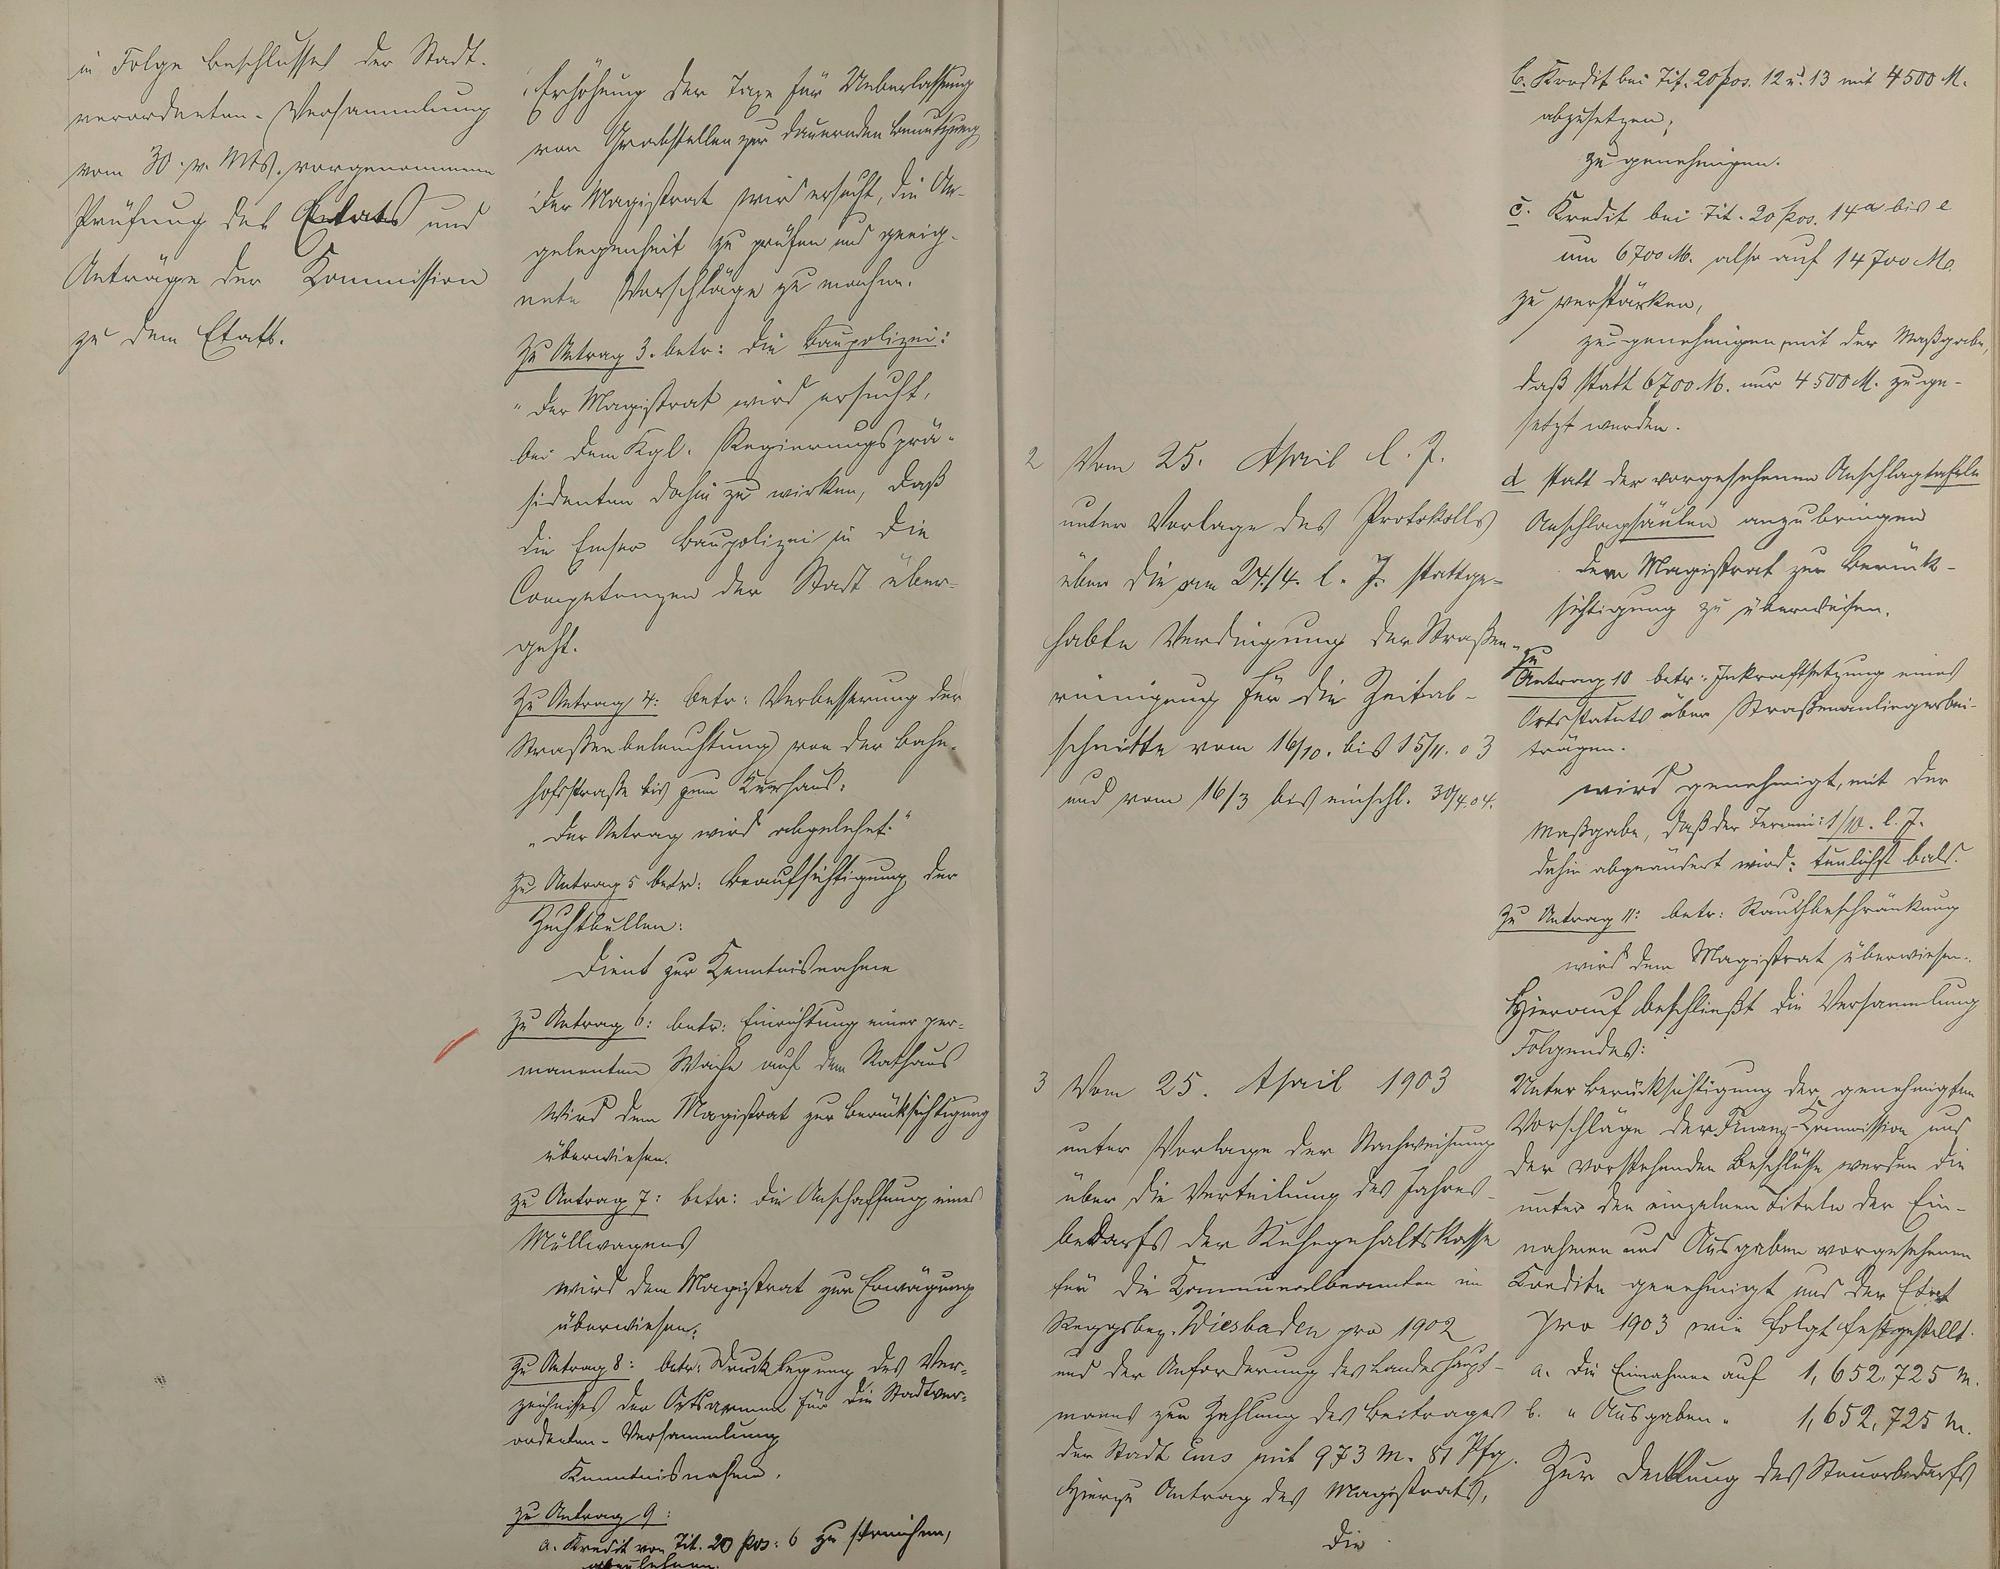 in Folge Beschlusses der Stadt-
verordneten-Versammlung
vom 30. v. Mts. vorgenommene
Prüfung des Etats und
Anträge der Kommission
zu dem Etat.
Erhöhung der Taxe für Ueberlassung
von Grabstellen zur dauernden Benutzung
Der Magistrat wird ersucht, die An-
gelegenheit zu prüfen und geeig-
nete Vorschläge zu machen.
Zu Antrag 3. betr: die Baupolizei:
"Der Magistrat wird ersucht,
bei dem Kgl. Regierungsprä-
sidenten dahin zu wirken, daß
die Emser Baupolizei in die
Competenzen der Stadt über-
geht.
Zu Antrag 4: betr: Verbesserung der
Straßenbeleuchtung von der Bahn-
hofstraße bis zum Kurhaus.
"Der Antrag wird abgelehnt."
Zu Antrag 5 betr: Beaufsichtigung der
Zuchtbullen:
Dient zur Kenntnisnahme
Zu Antrag 6: betr: Einrichtung einer per-
manenten Wache auf dem Rathaus
Wird dem Magistrat zur Berücksichtigung
überwiesen.
Zu Antrag 7: betr: die Anschaffung eines
Müllwagens
wird dem Magistrat zur Erwägung
überwiesen.
Zu Antrag 8: betr: Drucklegung des Ver-
zeichnisses der Ortsarmen für die Stadtver-
ordneten-Versammlung
Kenntnisnahme.
Zu Antrag 9:
a. Kredit von Tit. 20 Pos: 6 zu streichen,
abzulehnen.
2 Vom 25. April l. J.
unter Vorlage des Protokolls
über die am 24/4. l. J. stattge-
habte Verdingung der Straßen-
reinigung für die Zeitab-
schnitte vom 16/10. bis 15/11. 03
und vom 16/3 bis einschl. 30/4 04.
3 Vom 25. April 1903
unter Vorlage der Nachweisung
über die Verteilung des Jahres-
bedarfs der Ruhegehaltskasse
für die Kommunalbeamten im
Reggsbez. Wiesbaden pro 1902
und der Anforderung des Landeshaupt-
manns zur Zahlung des Beitrages
der Stadt Ems mit 973 M. 81 Pfg.
Hierzu Antrag des Magistrats,
die
b. Kredit bei Tit. 20 Pos. 12 u. 13 mit 4500 M.
abzusetzen;
zu genehmigen.
c. Kredit bei Tit. 20 Pos. 14 a bis e
um 6700 M. also auf 14700 M.
zu verstärken,
zu genehmigen, mit der Maßgabe,
daß statt 6700 M. nur 4500 M. zuge-
setzt werden.
d statt der vorgesehenen Anschlagtafeln
Anschlagsäulen anzubringen
dem Magistrat zur Berück-
sichtigung zu überweisen.
Zu
Antrag 10 betr: Inkraftsetzung eines
Ortsstatuts über Straßenanliegerbei-
trägen.
wird genehmigt, mit der
Maßgabe, daß der Termin: 1/10. l. J.
dahin abgeändert wird: tunlichst bald.
Zu Antrag 11: betr: Rauchbeschränkung
wird dem Magistrat überwiesen.
Hierauf beschließt die Versammlung
Folgendes:
Unter Berücksichtigung der genehmigten
Vorschläge der Finanz-Kommission und
der vorstehenden Beschlüsse werden die
unter den einzelnen Titeln der Ein-
nahmen und Ausgaben vorgesehenen
Kredite genehmigt und der Etat
pro 1903 wie folgt festgestellt.
a. Die Einnahmen auf 1,652,725 M.
b. " Ausgaben " 1,652,725 M.
Zur Deckung des Steuerbedarfs